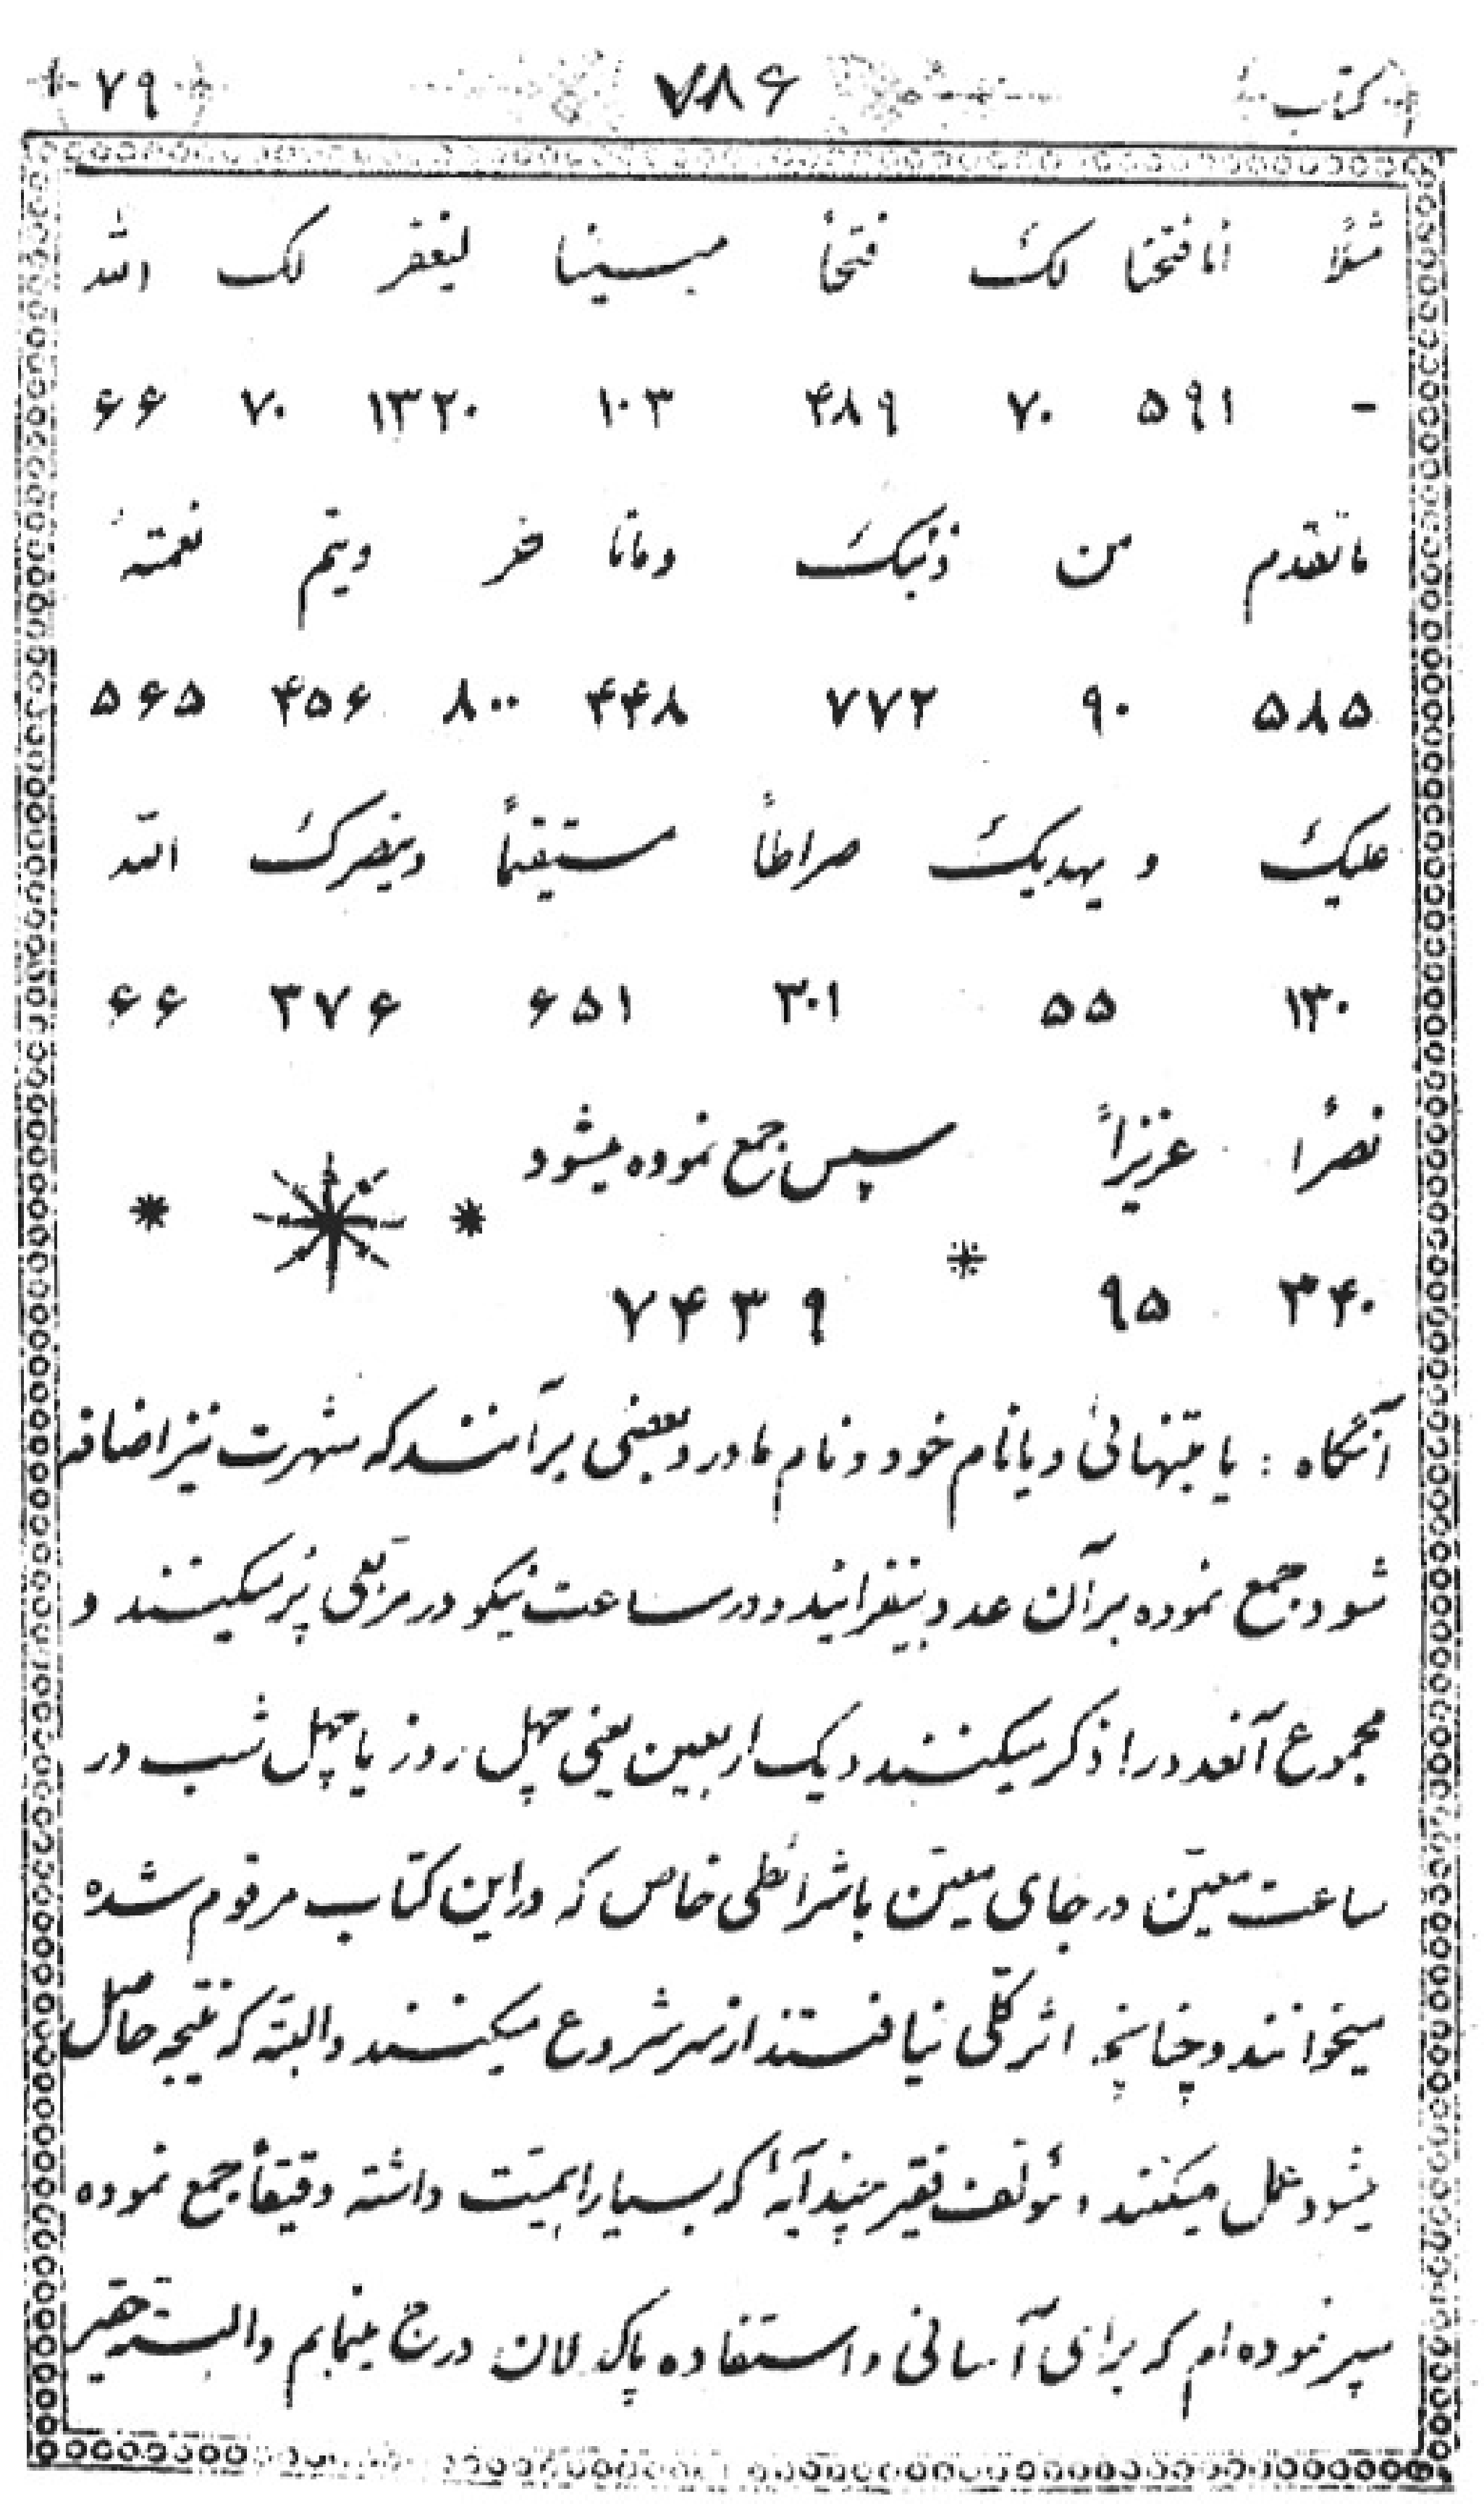 کتاب ۷۸۶ ۷۹
مثلاً انا فتحنا لکَ فتحاً مبینا لیغفر لک الله
- ۵۹۱ ۷۰ ۴۸۹ ۱۰۳ ۱۳۲۰ ۷۰ ۶۶
ما تقدم من ذنبکَ و ما تا خر و یتم نعمته
۵۸۵ ۹۰ ۷۷۲ ۴۴۸ ۸۰۰ ۴۵۶ ۵۶۵
علیکَ و یهدیکَ صراطاً مستقیماً و ینصرکَ الله
۱۳۰ ۵۵ ۳۰۱ ۶۵۱ ۳۷۶ ۶۶
نصرًا عزیزاً سپس جمع نموده میشود
۳۴۰ ۹۵ ۷۴۳۹
آنگاه : یا بتنهائی و یا نام خود و نام مادر و بعضی برآنند که شهرت نیز اضافه
شود جمع نموده بر آن عدد بیفزائید و در ساعت نیکو در مربعی پُر میکنند و
مجموع آنعدد را ذکر میکنند و یک اربعین یعنی چهل روز یا چهل شب در
ساعت معیّن در جای معیّن با شرائطی خاص که در این کتاب مرقوم شده
میخوانند و چنانچه اثر کلّی نیافتند از سر شروع میکنند و البته که نتیجه حاصل
میشود عمل میکنند ، مؤلف فقیر چند آیهٔ که بسیار اهمیّت داشته دقیقاً جمع نموده
سپر نموده ام که برای آسانی و استفاده پاکدلان درج مینمایم و البته حقیر